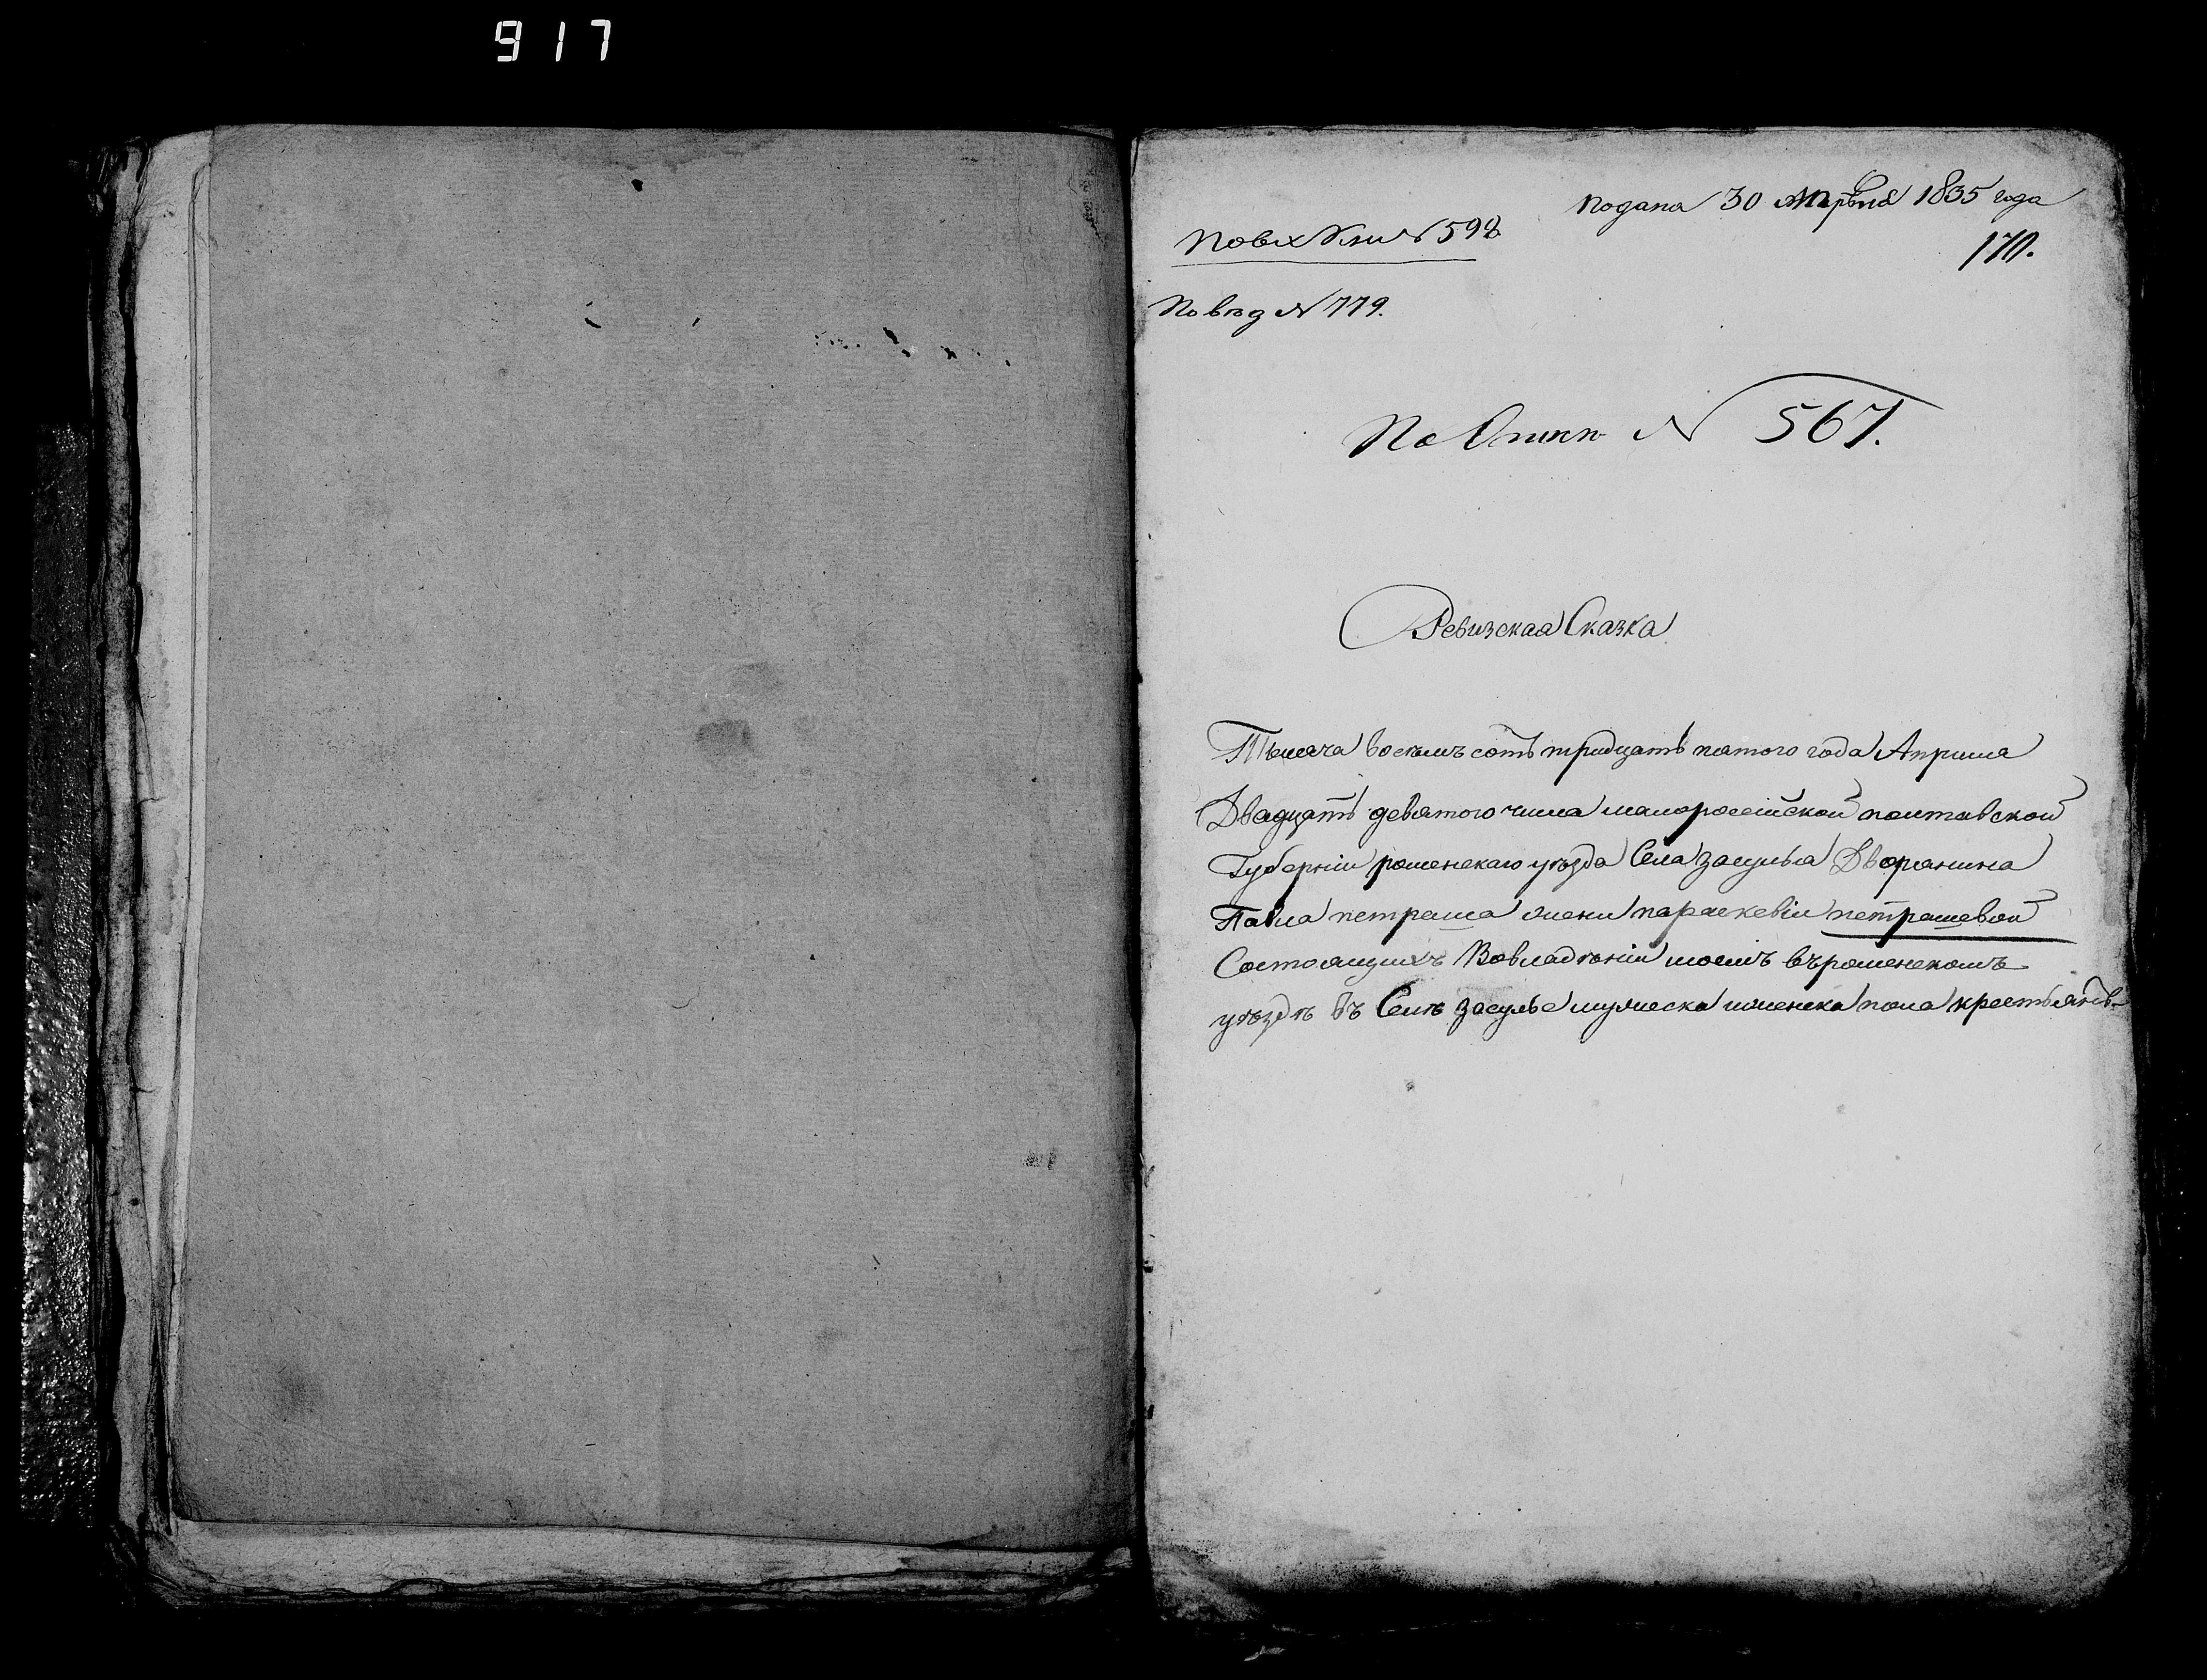 917
подана 30 Апрѣля 1835 года
По вх Кни № 598
170.
По вѣд № 779.
По Описи № 567.
Ревизская Сказка
Тысяча восемъ сотъ тридцать пятого года Априля
Двадцать девятого числа малоросейской полтавской
Губерніи роменскаго уѣзда Села засулья Дворянина
Павла петраша жены параскевіи петрашевой
Состоящихъ Вовладѣніи моемъ въроменскомъ
уѣздѣ въ Селѣ засулье мужеска иженска пола крестьянъ